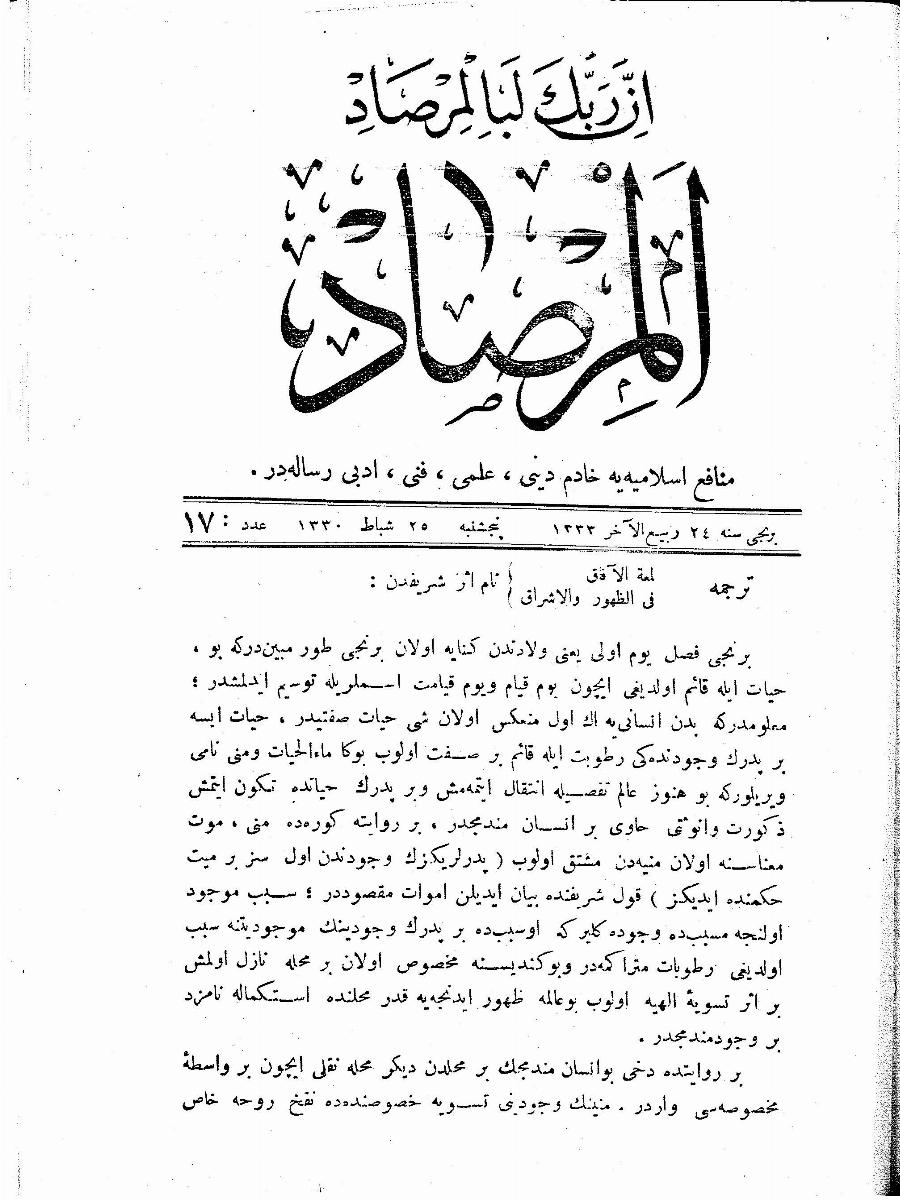 اِنَّ رَبَّكَ لَبِالْمِرْصَادِ
اَلْمِرْصَادْ
منافع اسلاميه‌يه خادم دينى ، علمى ، فنى ، ادبى رساله‌در .
برنجى سنه ٢٤ ربيع الآخر ١٣٣٣ پنجشنبه ٢٥ شباط ١٣٣٠ عدد : ١٧
ترجمه
لمعة الآفاق
فى الظهور والاشراق
نام اثر شريفدن :
برنجى فصل يوم اولى يعنى ولادتدن كنايه اولان برنجى طور مبين‌دركه بو ،
حيات ايله قائم اولديغى ايچون يوم قيام ويوم قيامت اسملريله توسيم ايدلمشدر ؛
معلومدركه بدن انسانى‌يه اك اول منعكس اولان شى حيات صفتيدر ، حيات ايسه
بر پدرك وجودنده‌كى رطوبت ايله قائم بر صفت اولوب بوكا ماءالحيات ومنى نامى
ويريلوركه بو هنوز عالم تفصيله انتقال ايتمه‌مش وبر پدرك حياتده تكون ايتمش
ذكورت وانوثتى حاوى بر انسان مندمجدر ، بر روايته كوره‌ده منى ، موت
معناسنه اولان منيه‌دن مشتق اولوب ( پدرلريكزك وجودندن اول سز بر ميت
حكمنده ايديكز ) قول شريفنده بيان ايديلن اموات مقصوددر ؛ سبب موجود
اولنجه مسبب‌ده وجوده كلير كه اوسبب‌ده بر پدرك وجودينك موجوديتنه سبب
اولديغى رطوبات متراكمه‌در وبوكنديسنه مخصوص اولان بر محله نازل اولمش
بر اثر تسويۀ الهيه اولوب بوعالمه ظهور ايدنجه‌يه قدر محلنده استكماله نامزد
بر وجودمندمجدر .
بر روايتده دخى بوانسان مندمجك بر محلدن ديكر محله نقلى ايچون بر واسطۀ
مخصوصه‌سى واردر . منينك وجودينى تسويه خصوصنده‌ده نفخ روحه خاص